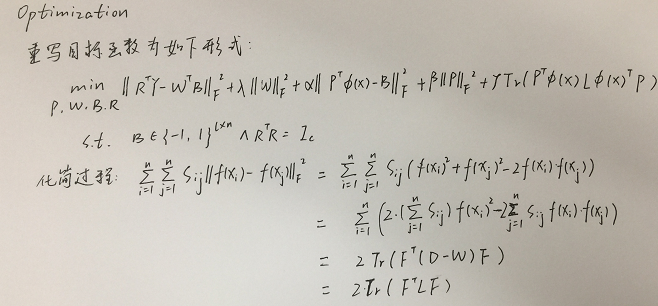 Optimization
重写目标函数为如下形式:
min ‖RᵀY-WᵀB‖_F² + λ‖W‖_F² + α‖Pᵀϕ(x)-B‖_F² + β‖P‖_F² + γTr(Pᵀϕ(x)Lϕ(x)ᵀP)
P.W.B.R
s.t. B∈{-1,1}^{l×n} ∧ RᵀR = I_c
化简过程: Σ_{i=1}^{n} Σ_{j=1}^{n} S_{ij}‖f(x_i)-f(x_j)‖_F² = Σ_{i=1}^{n} Σ_{j=1}^{n} S_{ij}(f(x_i)²+f(x_j)²-2f(x_i)·f(x_j))
= Σ_{i=1}^{n} (2·(Σ_{j=1}^{n} S_{ij})f(x_i)²-2Σ_{j=1}^{n} S_{ij}f(x_i)·f(x_j))
= 2Tr(Fᵀ(D-W)F)
= 2·Tr(FᵀLF)